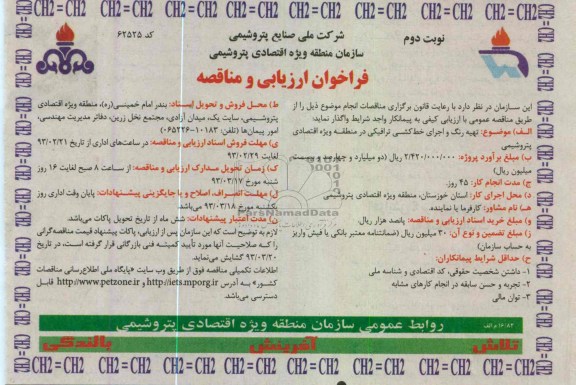 CH2 = CH2 = CH2 = CH2 = CH2 = CH2 = CH2 = CH2 = CH2
نوبت دوم
شرکت ملی صنایع پتروشیمی
کد ۶۲۵۲۵
سازمان منطقه ویژه اقتصادی پتروشیمی
فراخوان ارزیابی و مناقصه
این سازمان در نظر دارد با رعایت قانون برگزاری مناقصات انجام موضوع ذیل را از
طریق مناقصه عمومی با ارزیابی کیفی به پیمانکار واجد شرایط واگذار نماید:
الف) موضوع: تهیه رنگ و اجرای خط‌کشی ترافیکی در منطقه ویژه اقتصادی
پتروشیمی
ب) مبلغ برآورد پروژه: ۲/۴۲۰/۰۰۰/۰۰۰ ریال (دو میلیارد و چهارصد و بیست
میلیون ریال)
ج) مدت انجام کار: ۴۵ روز.
د) محل اجرای کار: استان خوزستان، منطقه ویژه اقتصادی پتروشیمی
هـ) نام مشاور: کارفرما یا نماینده
و) مبلغ خرید اسناد ارزیابی و مناقصه: پانصد هزار ریال.
ز) مبلغ تضمین و نوع آن: ۳۰ میلیون ریال (ضمانتنامه معتبر بانکی یا فیش واریز
به حساب سازمان)
ح) حداقل شرایط پیمانکاران:
۱- داشتن شخصیت حقوقی، کد اقتصادی و شناسه ملی
۲- تجربه و حسن سابقه در انجام کارهای مشابه
۳- توان مالی
ط) محل فروش و تحویل اسناد: بندر امام خمینی(ره)، منطقه ویژه اقتصادی
پتروشیمی، سایت یک، میدان آزادی، مجتمع نخل زرین، دفاتر مدیریت مهندسی،
امور پیمان‌ها (تلفن: ۱۰۱۸۳-۰۶۵۲۲۶)
ی) مهلت فروش اسناد ارزیابی و مناقصه: در ساعت‌های اداری از تاریخ ۹۳/۰۲/۲۱
لغایت ۹۳/۰۲/۲۹
ک) زمان تحویل مدارک ارزیابی و مناقصه: از ساعت ۸ صبح لغایت ۱۶ روز
شنبه مورخ ۹۳/۰۳/۱۷
ل) مهلت انصراف، اصلاح و یا جایگزینی پیشنهادات: پایان وقت اداری روز
یکشنبه مورخ ۹۳/۰۳/۱۸ می‌باشد.
م) مدت اعتبار پیشنهادات: شش ماه از تاریخ تحویل پاکات می‌باشد.
لازم به توضیح است که این سازمان پس از ارزیابی، پاکات پیشنهاد قیمت مناقصه‌گرانی
را که صلاحیت آنها مورد تأیید کمیته فنی بازرگانی قرار گرفته است، در تاریخ
۹۳/۰۳/۲۰ گشایش می‌نماید.
اطلاعات تکمیلی مناقصه فوق از طریق وب سایت «پایگاه ملی اطلاع‌رسانی مناقصات
کشور» به آدرس http://iets.mporg.ir و http://www.petzone.ir قابل
دسترسی می‌باشد.
ParsNamadData
روابط عمومی سازمان منطقه ویژه اقتصادی پتروشیمی
تلاش
آفرینش
بالندگی
CH2 = CH2 = CH2 = CH2 = CH2 = CH2 = CH2 = CH2